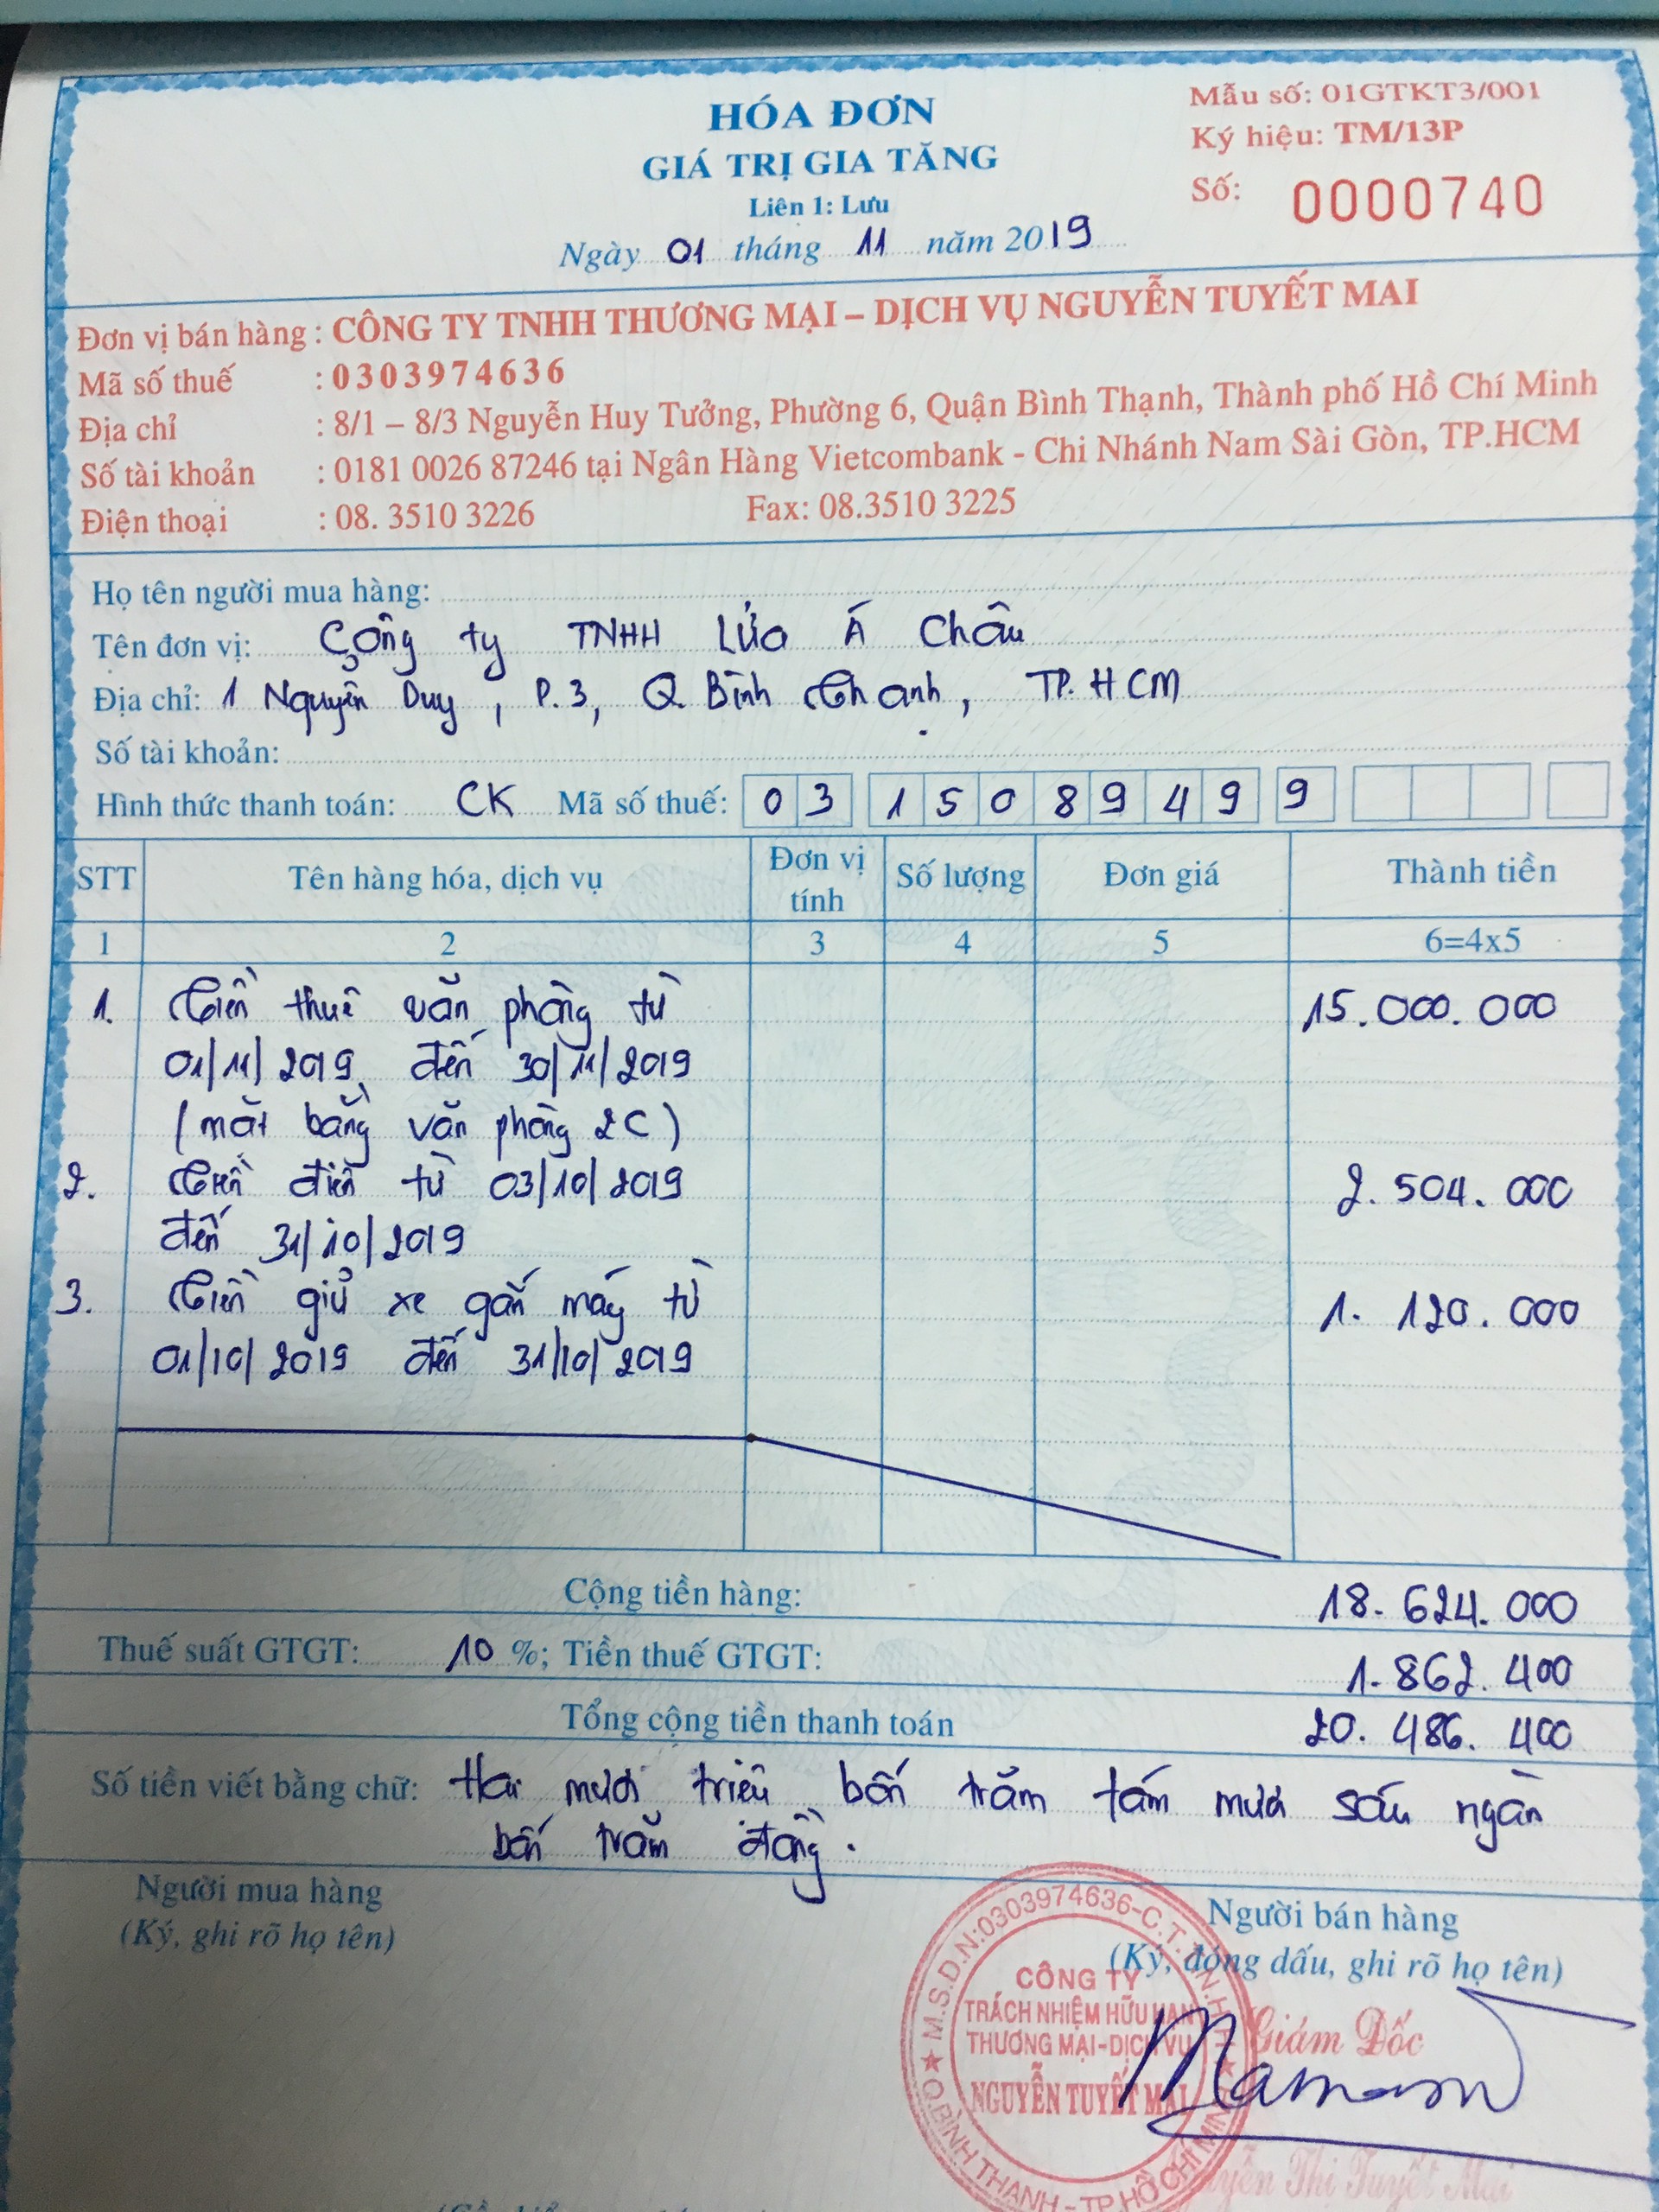 HÓA ĐƠN
GIÁ TRỊ GIA TĂNG
Liên 1: Lưu
Ngày 01 tháng 11 năm 2019
Mẫu số: 01GTKT3/001
Ký hiệu: TM/13P
Số: 0000740
Đơn vị bán hàng : CÔNG TY TNHH THƯƠNG MẠI – DỊCH VỤ NGUYỄN TUYẾT MAI
Mã số thuế : 0303974636
Địa chỉ : 8/1 – 8/3 Nguyễn Huy Tưởng, Phường 6, Quận Bình Thạnh, Thành phố Hồ Chí Minh
Số tài khoản : 0181 0026 87246 tại Ngân Hàng Vietcombank - Chi Nhánh Nam Sài Gòn, TP.HCM
Điện thoại : 08. 3510 3226 Fax: 08.3510 3225
Họ tên người mua hàng:
Tên đơn vị: Công ty TNHH Lửa Á Châu
Địa chỉ: 1 Nguyễn Duy, P.3, Q Bình Thạnh, TP.HCM
Số tài khoản:
Hình thức thanh toán: CK Mã số thuế: 03 1508949 9
STT Tên hàng hóa, dịch vụ Đơn vị tính Số lượng Đơn giá Thành tiền
1 2 3 4 5 6=4x5
1. Tiền thuê văn phòng từ 15.000.000
01/11/2019 đến 30/11/2019
(mặt bằng văn phòng 2C)
2. Tiền điện từ 03/10/2019 2.504.000
đến 31/10/2019
3. Tiền giữ xe gắn máy từ 1.120.000
01/10/2019 đến 31/10/2019
Cộng tiền hàng: 18.624.000
Thuế suất GTGT: 10 %; Tiền thuế GTGT: 1.862.400
Tổng cộng tiền thanh toán 20.486.400
Số tiền viết bằng chữ: Hai mươi triệu bốn trăm tám mươi sáu ngàn
bốn trăm đồng.
Người mua hàng
(Ký, ghi rõ họ tên)
Người bán hàng
(Ký, đóng dấu, ghi rõ họ tên)
M.S.D.N:0303974636-C.T.T.N.H.H
CÔNG TY
TRÁCH NHIỆM HỮU HẠN
THƯƠNG MẠI-DỊCH VỤ
NGUYỄN TUYẾT MAI
Q.BÌNH THẠNH-TP.HỒ CHÍ MINH
Giám Đốc
Nguyễn Thị Tuyết Mai